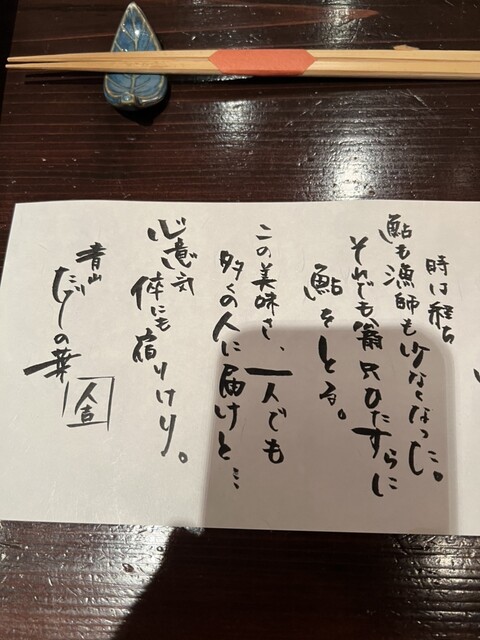 時は経ち
鮎も漁師も少なくなった。
それでも翁只ひたすらに
鮎をとる。
この美味さ、一人でも
多くの人に届けと…
心意気
体にも宿りけり。
青山
の華
人吉